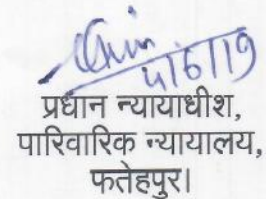 4/6/19
प्रधान न्यायाधीश,
पारिवारिक न्यायालय,
फतेहपुर।